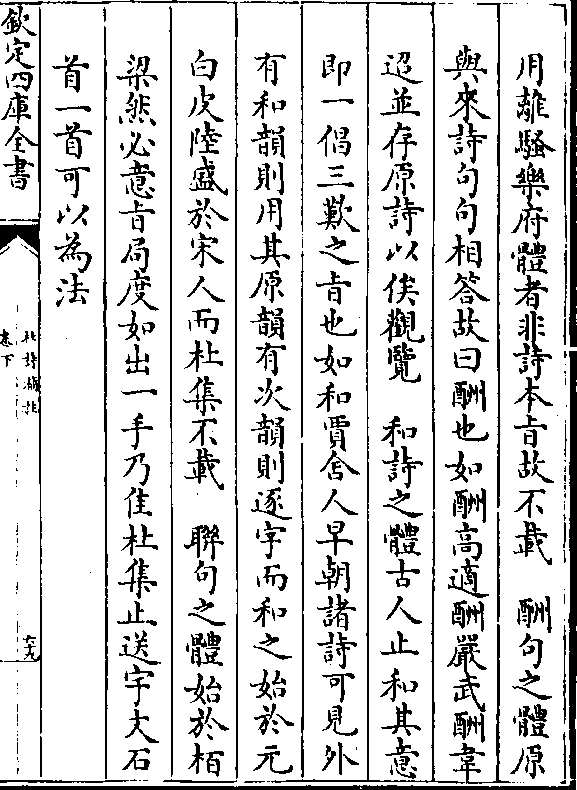 用離騷樂府體者非詩本旨故不載　酬句之體原
與來詩句句相答故曰酬也如酬高適酬嚴武酬韋
迢並存原詩以俟觀覽　和詩之體古人止和其意
即一倡三歎之旨也如和賈舍人早朝諸詩可見外
有和韻則用其原韻有次韻則逐字而和之始於元
白皮陸盛於宋人而杜集不載　聯句之體始於栢
梁然必意旨局度如出一手乃佳杜集止送宇文石
首一首可以為法
欽定四庫全書
杜詩攟
卷下